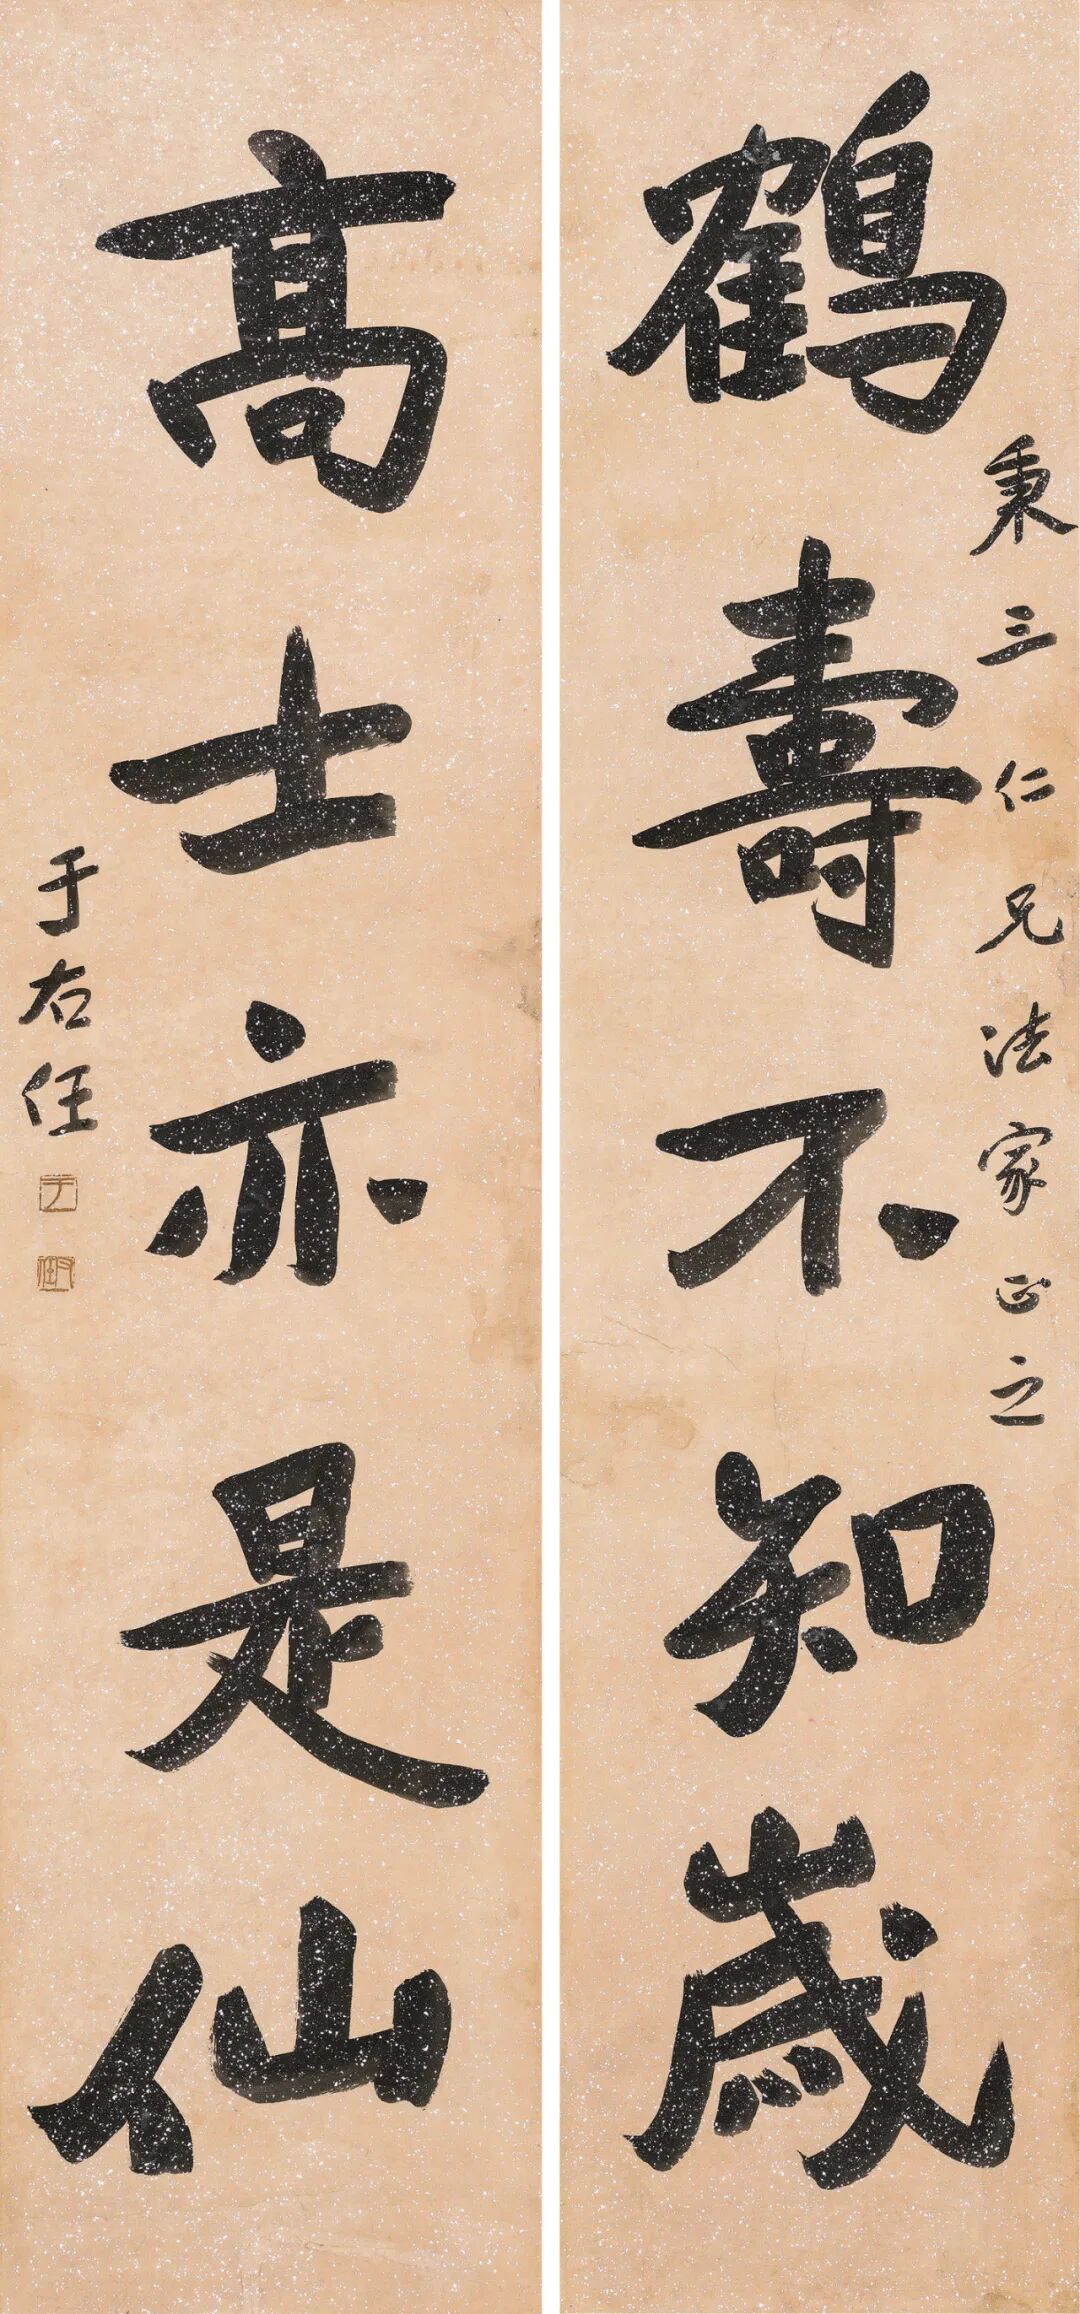 鶴壽不知歲
秉三仁兄法家正之
高士亦是仙
于右任